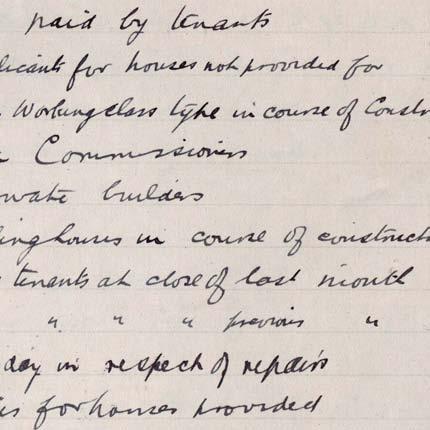 paid by tenants
licants for houses not provided for
Working class type in course of Constr
Commissioners
ivate builders
linghouses in course of construct
tenants at close of last month
" " " previous "
day in respect of repairs
for houses provided